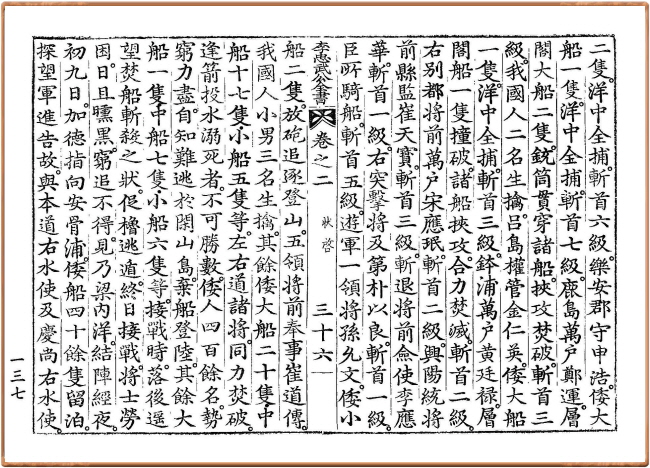 二隻洋中全捕斬首六級樂安郡守申浩倭大
船一隻洋中全捕斬首七級鹿島萬戶鄭運層
閣大船二隻銃筒貫穿諸船挾攻焚破斬首三
級我國人二名生擒呂島權管金仁英倭大船
一隻洋中全捕斬首三級鉢浦萬戶黃廷祿層
閣船一隻撞破諸船挾攻合力焚滅斬首二級
右別都將前萬戶宋應珉斬首二級興陽統將
前縣監崔天寶斬首三級斬退將前僉使李應
華斬首一級右突擊將及第朴以良斬首一級
臣所騎船斬首五級遊軍一領將孫允文倭小
李忠武公全書 卷之二 狀啓 三十六
船二隻放砲追逐登山五領將前奉事崔道傳
我國人小男三名生擒其餘倭大船二十隻中
船十七隻小船五隻等左右道諸將同力焚破
逢箭投水溺死者不可勝數倭人四百餘名勢
窮力盡自知難逃於閑山島棄船登陸其餘大
船一隻中船七隻小船六隻等接戰時落後遥
望焚船斬殺之狀促櫓逃遁終日接戰將士勞
困日且曛黑窮追不得見乃梁內洋結陣經夜
初九日加德指向安骨浦倭船四十餘隻留泊
探望軍進告故與本道右水使及慶尚右水使
一三七